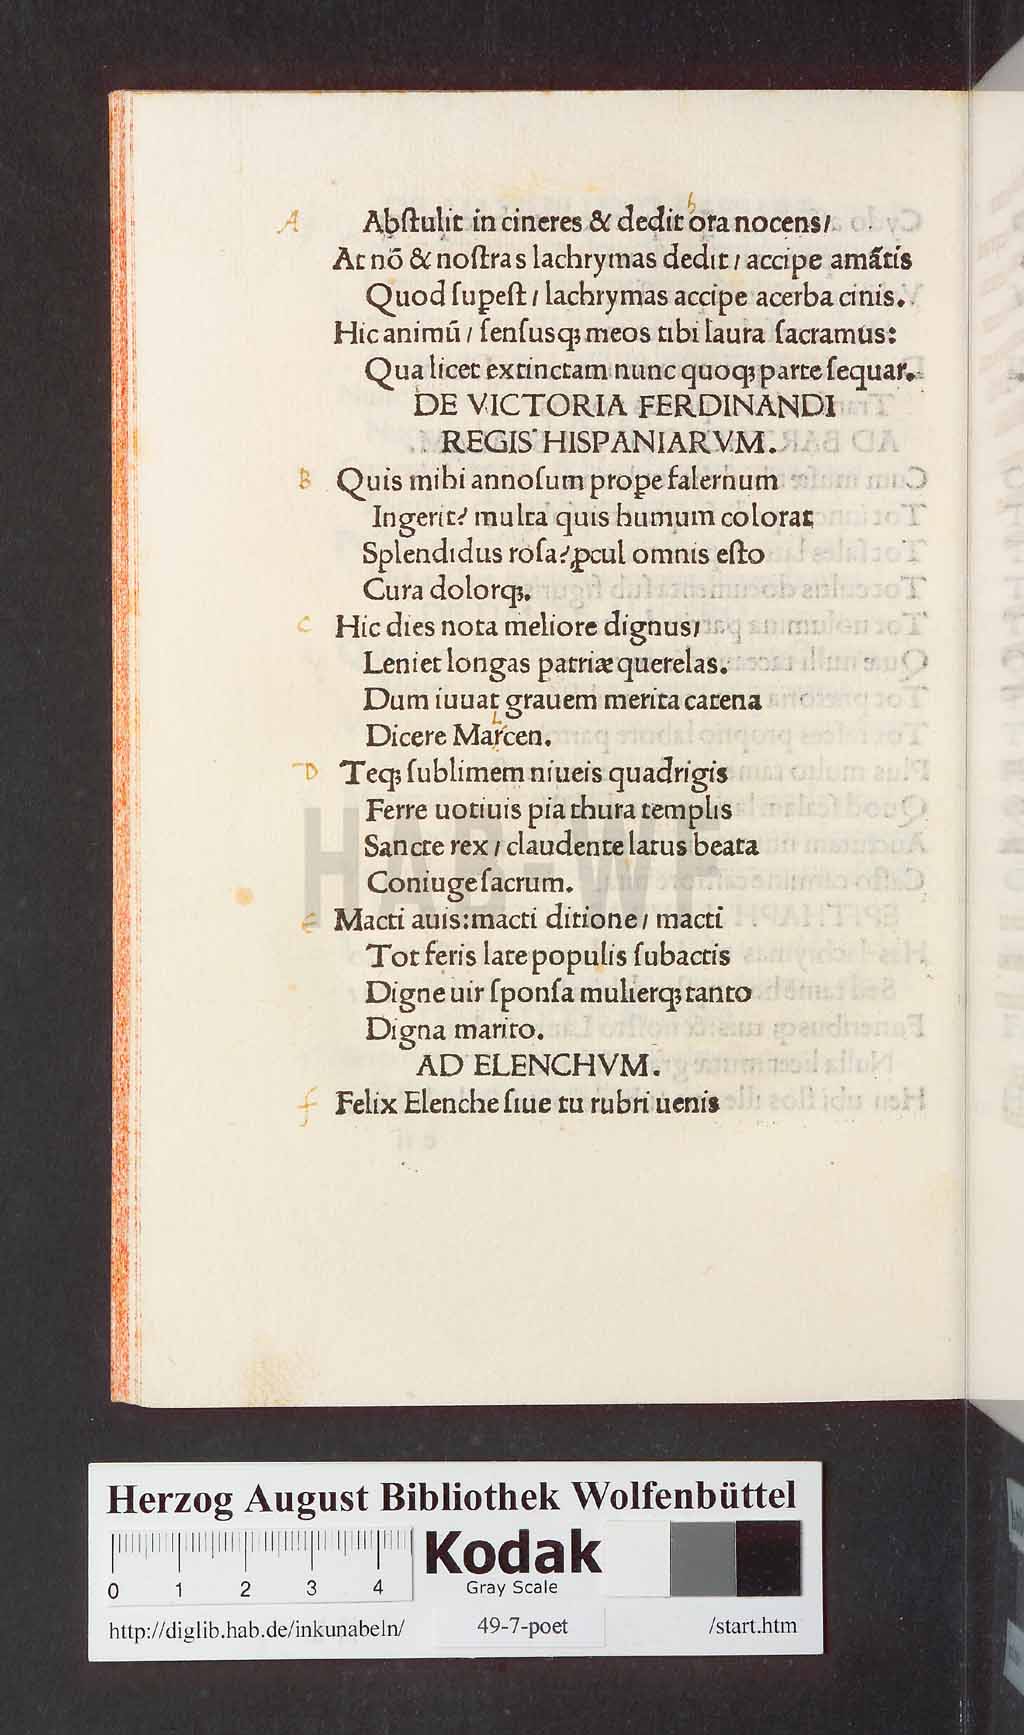 A Abſtulit in cineres & dedit ora nocens/
At nõ & noſtras lachrymas dedit / accipe amãtis
Quod ſuꝑeſt / lachrymas accipe acerba cinis.
Hic animũ / ſenſusqꝫ meos tibi laura ſacramus:
Qua licet extinctam nunc quoqꝫ parte ſequar.
DE VICTORIA FERDINANDI
REGIS HISPANIARVM.
B Quis mihi annoſum prope falernum
Ingerit? multa quis humum colorat
Splendidus roſa? ꝓcul omnis eſto
Cura dolorqꝫ.
C Hic dies nota meliore dignus/
Leniet longas patriæ querelas.
Dum iuuat grauem merita catena
Dicere Marcen.
D Teqꝫ ſublimem niueis quadrigis
Ferre uotiuis pia thura templis
Sancte rex / claudente latus beata
Coniuge ſacrum.
E Macti auis: macti ditione / macti
Tot feris late populis ſubactis
Digne uir ſponſa mulierqꝫ tanto
Digna marito.
AD ELENCHVM.
f Felix Elenche ſiue tu rubri uenis
HAB-WF
Herzog August Bibliothek Wolfenbüttel
0 1 2 3 4
Kodak
Gray Scale
http://diglib.hab.de/inkunabeln/ 49-7-poet /start.htm